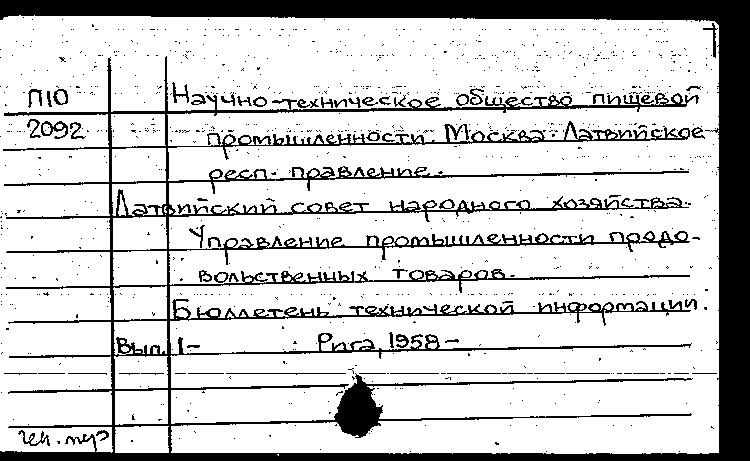 П10 Научно-техническое общество пищевой
2092 промышленности. Москва. Латвийское
респ. правление.
Латвийский совет народного хозяйства.
Управление промышленности продо-
вольственных товаров.
Бюллетень технической информации.
Вып. 1- Рига, 1958-